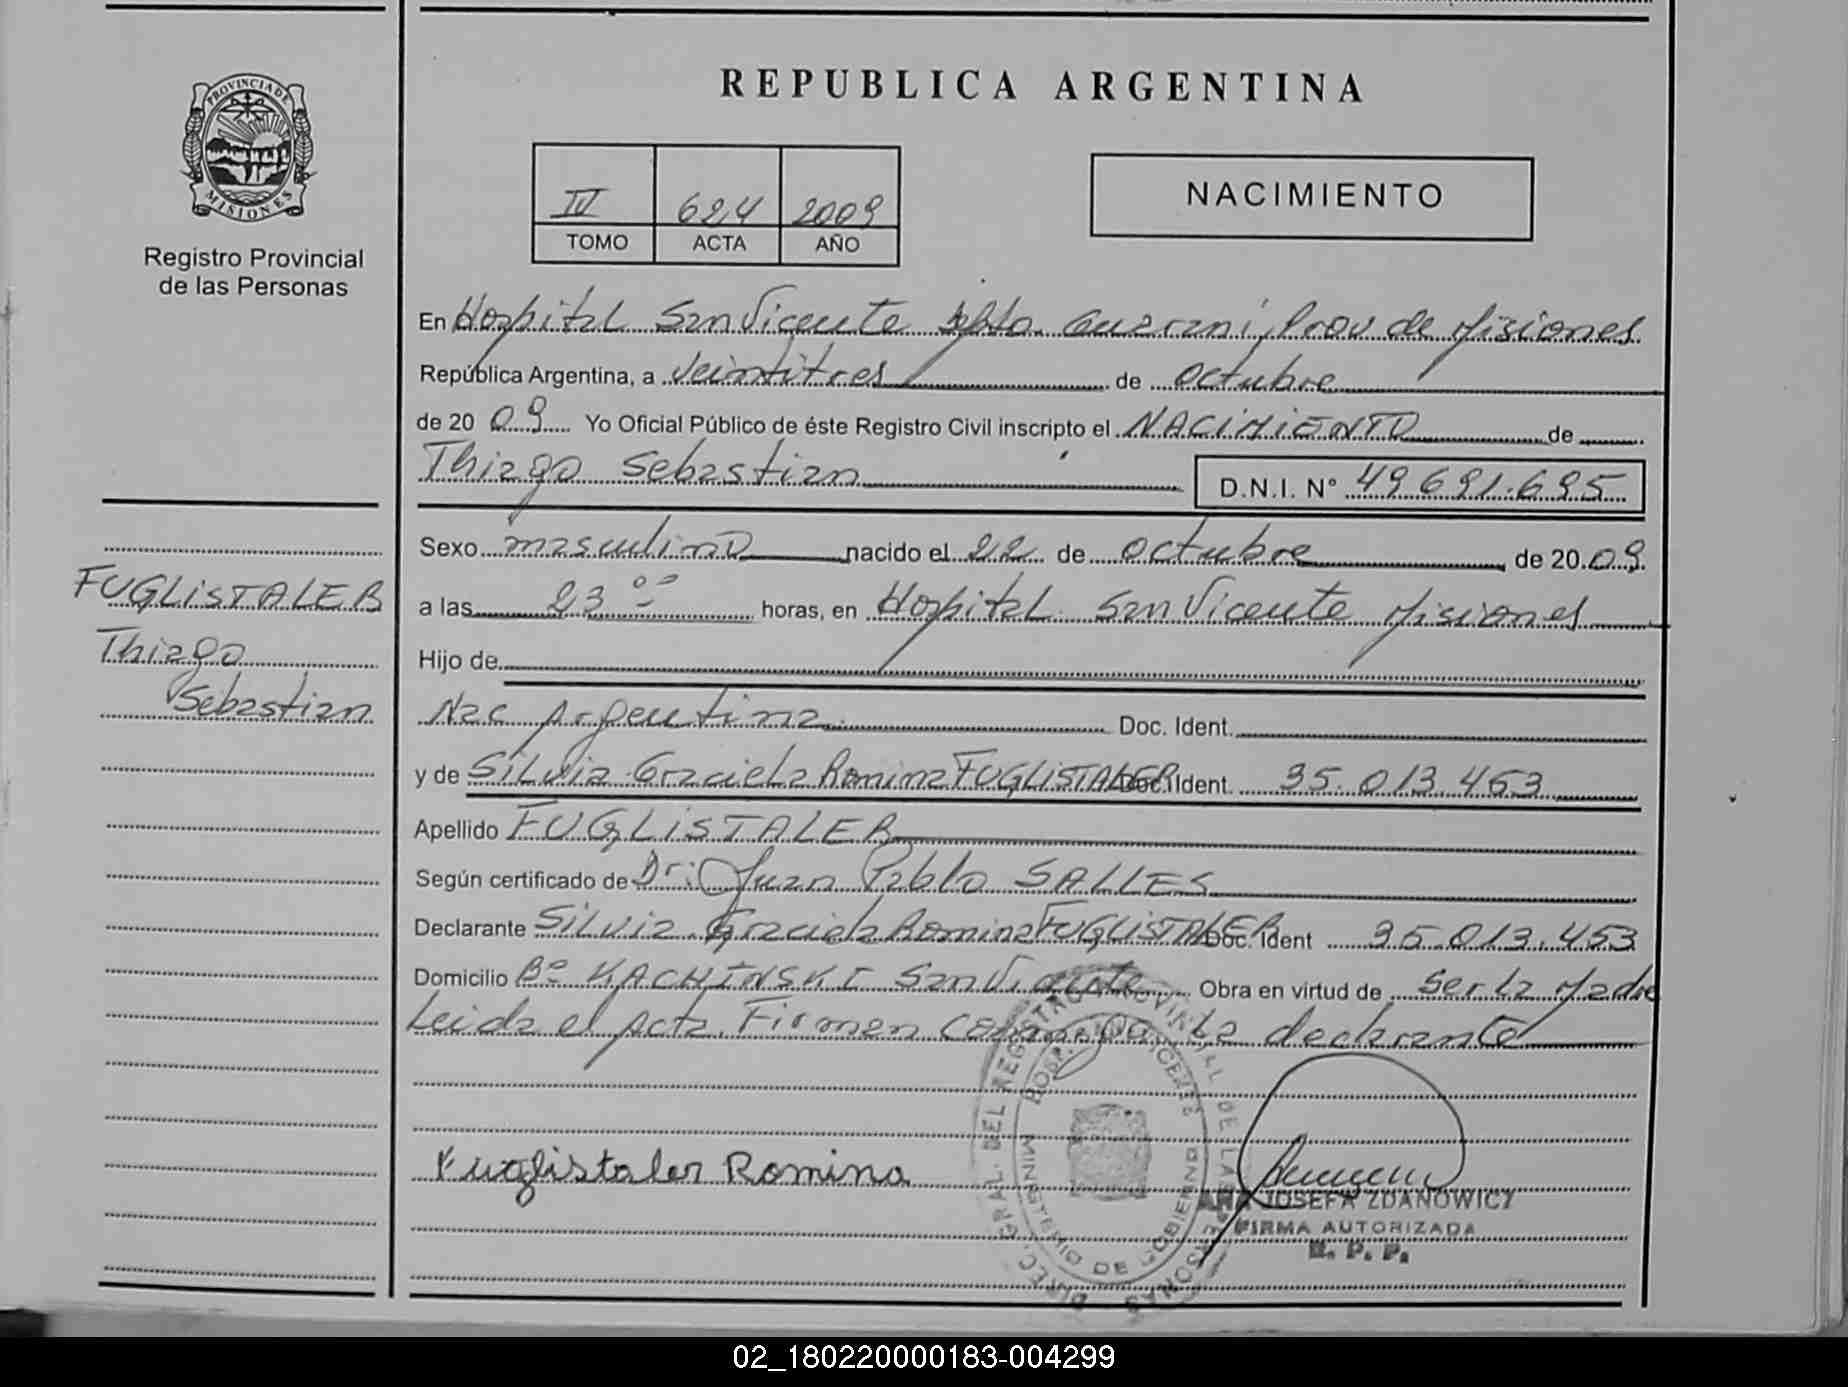 REPUBLICA ARGENTINA
PROVINCIA DE
MISIONES
Registro Provincial
de las Personas
IV 624 2009
TOMO ACTA AÑO
NACIMIENTO
En Hospital San Vicente Dpto. Guarani, Prov de Misiones
República Argentina, a veintitres de octubre
de 20 09 Yo Oficial Público de éste Registro Civil inscripto el NACIMIENTO de
Thiago Sebastian D.N.I. N° 49.691.695
Sexo masculino nacido el 22 de octubre de 20 09
FUGLISTALER
Thiago
Sebastian
a las 23 00 horas, en Hospital San Vicente Misiones
Hijo de
Nac Argentina Doc. Ident.
y de Silvia Graciela Romina FUGLISTALER Doc. Ident. 35.013.453
Apellido FUGLISTALER
Según certificado de Dr: Juan Pablo SALLES
Declarante Silvia Graciela Romina FUGLISTALER Doc. Ident 35.013.453
Domicilio B° KACHINSKI San Vicente Obra en virtud de ser la Madre
Leida el Acta. Firman la declarante
Fuglistaler Romina
DIREC. GRAL. DEL REGISTRO PROVINCIAL DE LAS PERSONAS
MINISTERIO DE GOBIERNO
ANA JOSEFA ZDANOWICZ
FIRMA AUTORIZADA
R. P. P.
02_180220000183-004299